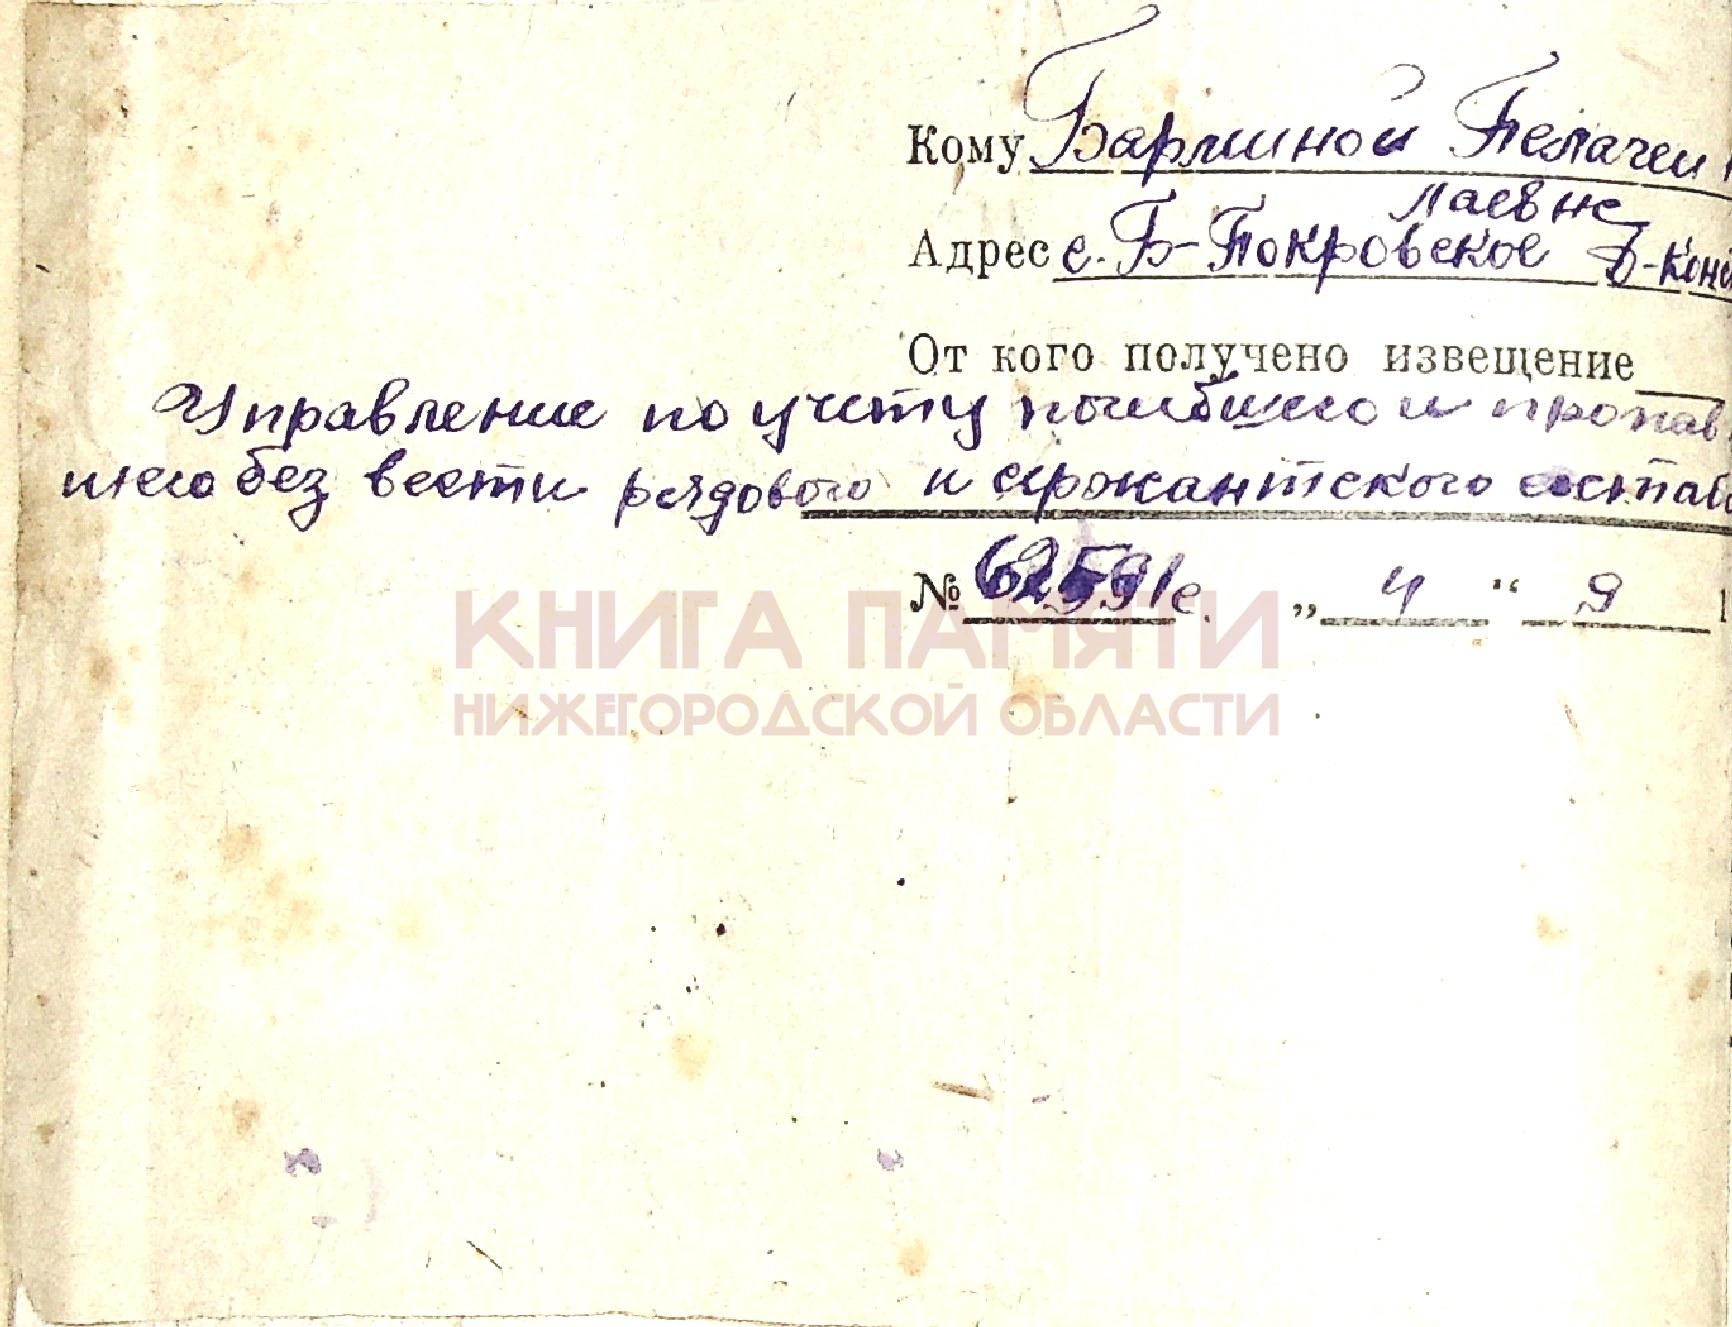 Кому Барминой Пелагеи
лаевне
Адрес с. Б-Покровское Д-Конс
От кого получено извещение
Управление по учету погибшего и пропав
шего без вести рядового и сержантского состав
№ 62591с. „ 4 “ 9
КНИГА ПАМЯТИ
НИЖЕГОРОДСКОЙ ОБЛАСТИ